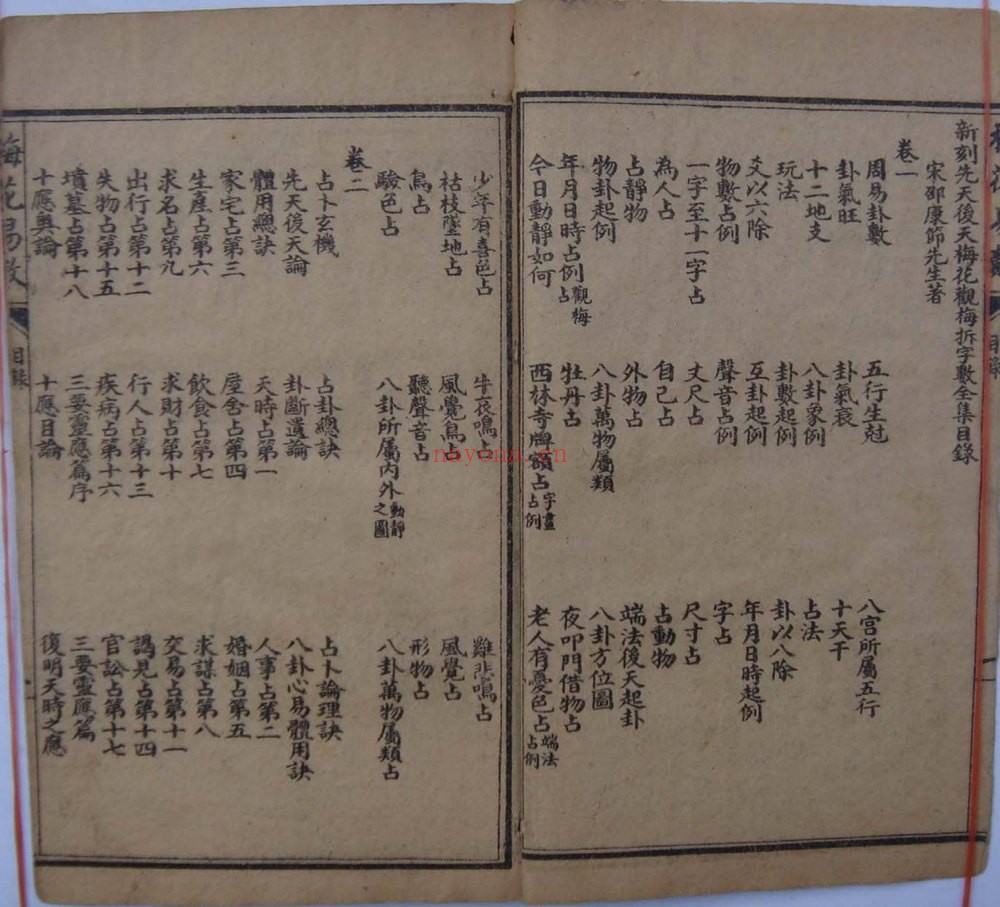 新刻先天後天梅花觀梅拆字數全集目錄
宋邵康節先生著
卷一
周易卦數 五行生尅 八宮所屬五行
卦氣旺 卦氣衰 十天干
十二地支 八卦象例 占法
玩法 卦數起例 卦以八除
爻以六除 互卦起例 年月日時起例
物數占例 聲音占例 字占
一字至十一字占 丈尺占 尺寸占
為人占 自己占 占動物
占靜物 外物占 端法後天起卦
物卦起例 八卦萬物屬類 八卦方位圖
年月日時占例觀梅占 牡丹占 夜叩門借物占
今日動靜如何 西林寺牌額占字畫占例 老人有憂色占端法占例
少年有喜色占 牛哀鳴占 雞悲鳴占
枯枝墜地占 風覺鳥占 風覺占
鳥占 聽聲音占 形物占
驗色占 八卦所屬內外動靜之圖 八卦萬物屬類占
卷二
占卜玄機 占卦總訣 占卜論理訣
先天後天論 卦斷遺論 八卦心易體用訣
體用總訣 天時占第一 人事占第二
家宅占第三 屋舍占第四 婚姻占第五
生產占第六 飲食占第七 求謀占第八
求名占第九 求財占第十 交易占第十一
出行占第十二 行人占第十三 謁見占第十四
失物占第十五 疾病占第十六 官訟占第十七
墳墓占第十八 三要靈應篇序 三要靈應篇
十應奧論 十應目論 復明天時之應
梅花易數 目錄
nayona.cn